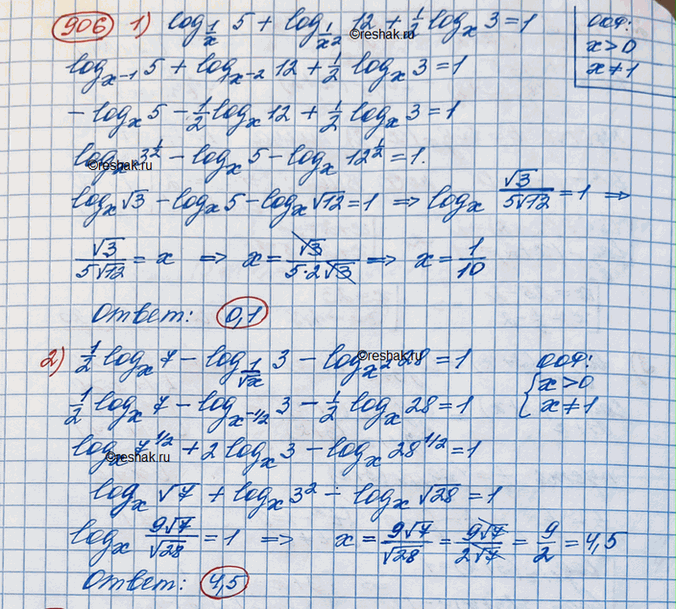 906 1) log_{1/x} 5 + log_{1/x²} 12 + 1/2 log_x 3 = 1
ООФ:
x > 0
x ≠ 1
©reshak.ru
log_{x⁻¹} 5 + log_{x⁻²} 12 + 1/2 log_x 3 = 1
- log_x 5 - 1/2 log_x 12 + 1/2 log_x 3 = 1
log_x 3^{1/2} - log_x 5 - log_x 12^{1/2} = 1.
©reshak.ru
log_x √3 - log_x 5 - log_x √12 = 1 ⇒ log_x √3/(5√12) = 1 ⇒
√3/(5√12) = x ⇒ x = √3/(5·2√3) ⇒ x = 1/10
Ответ: 0,1
2) 1/2 log_x 7 - log_{1/√x} 3 - log_{x²} 28 = 1
ООФ:
{ x > 0
x ≠ 1
©reshak.ru
1/2 log_x 7 - log_{x^{-1/2}} 3 - 1/2 log_x 28 = 1
log_x 7^{1/2} + 2 log_x 3 - log_x 28^{1/2} = 1
©reshak.ru
log_x √7 + log_x 3² - log_x √28 = 1
log_x 9√7/√28 = 1 ⇒ x = 9√7/√28 = 9√7/(2√7) = 9/2 = 4,5
Ответ: 4,5